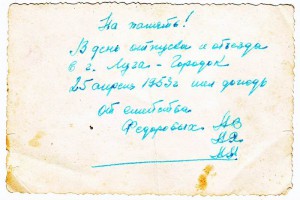 На память!
В день отпуска и отъезда
в г. Луза - Городок
25 апреля 1953г шел дождь
От семейства
Федоровых